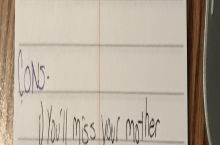 CONS-
1) You'll miss your mother